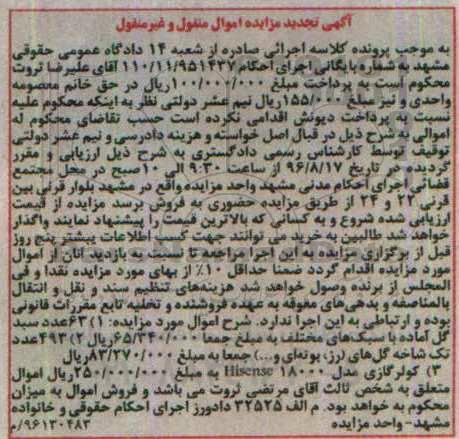 آگهی تجدید مزایده اموال منقول و غیرمنقول
به موجب پرونده کلاسه اجرائی صادره از شعبه ۱۴ دادگاه عمومی حقوقی
مشهد به شماره بایگانی اجرای احکام ۱۱۰/۱۱/۹۵۱۴۳۷ آقای علیرضا ثروت
محکوم است به پرداخت مبلغ ۱۰۰/۰۰۰/۰۰۰ریال در حق خانم معصومه
واحدی و نیز مبلغ ۱۵۵/۰۰۰ریال نیم عشر دولتی نظر به اینکه محکوم علیه
نسبت به پرداخت دیونش اقدامی نکرده است حسب تقاضای محکوم له
اموالی به شرح ذیل در قبال اصل خواسته و هزینه دادرسی و نیم عشر دولتی
توقیف توسط کارشناس رسمی دادگستری به شرح ذیل ارزیابی و مقرر
گردیده در تاریخ ۹۶/۸/۱۷ از ساعت ۹:۳۰ الی ۱۰صبح در محل مجتمع
قضائی اجرای احکام مدنی مشهد واحد مزایده واقع در مشهد بلوار قرنی بین
قرنی ۲۲ و ۲۴ از طریق مزایده حضوری به فروش برسد مزایده از قیمت
ارزیابی شده شروع و به کسانی که بالاترین قیمت را پیشنهاد نمایند واگذار
خواهد شد طالبین به خرید می توانند جهت کسب اطلاعات بیشتر پنج روز
قبل از برگزاری مزایده به این اجرا مراجعه تا نسبت به بازدید آنان از اموال
مورد مزایده اقدام گردد ضمنا حداقل ۱۰٪ از بهای مورد مزایده نقدا و فی
المجلس از برنده وصول خواهد شد هزینه‌های تنظیم سند و نقل و انتقال
بالمناصفه و بدهی‌های معوقه به عهده فروشنده و تخلیه تابع مقررات قانونی
بوده و ارتباطی به این اجرا ندارد. شرح اموال مورد مزایده: ۱) ۶۳عدد سبد
گل آماده با سبک‌های مختلف به مبلغ جمعا ۶۵/۳۴۰/۰۰۰ریال ۲) ۴۹۳عدد
تک شاخه گل‌های (رز، بونه‌ای و...) جمعا به مبلغ ۸۳/۲۷۰/۰۰۰ریال
۳) کولرگازی مدل ۱۸۰۰۰ Hisense به مبلغ ۲۵۰/۰۰۰/۰۰۰ریال اموال
متعلق به شخص ثالث آقای مرتضی ثروت می باشد و فروش اموال به میزان
محکوم به خواهد بود. م الف ۳۲۵۲۵ دادورز اجرای احکام حقوقی و خانواده
مشهد- واحد مزایده ۹۶۱۳۰۴۸۳/م